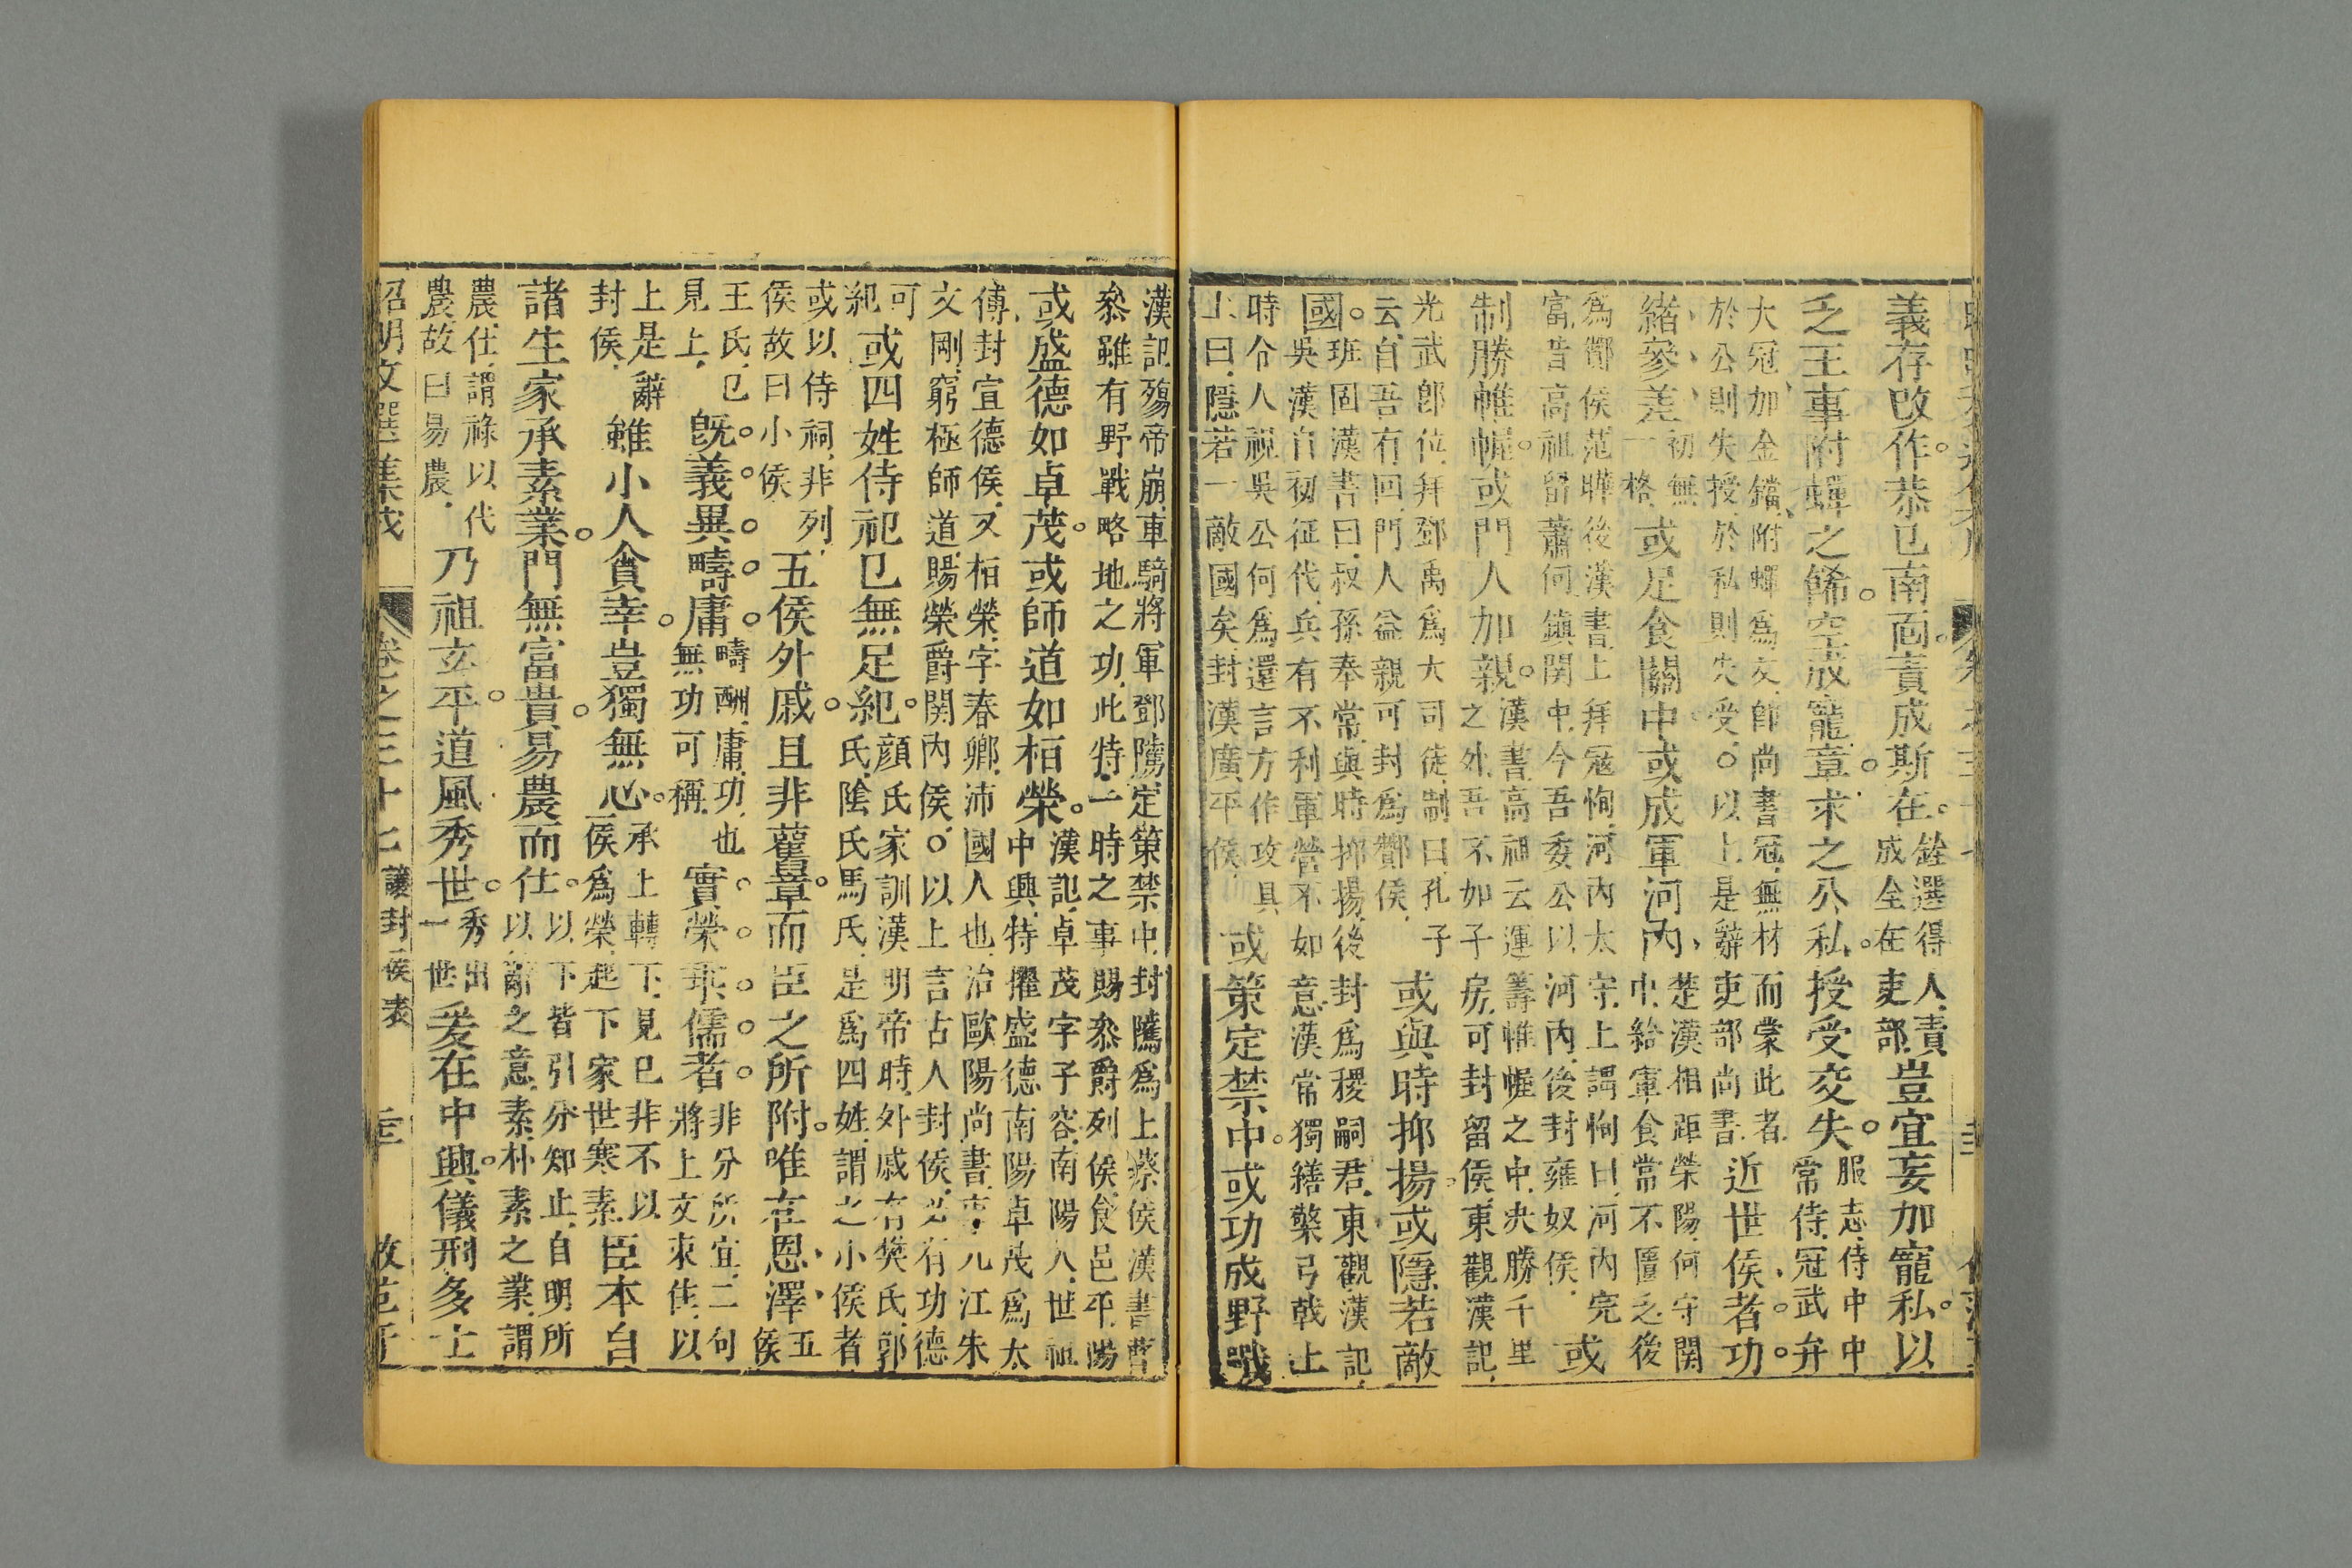 義存改作。恭已南面。責成斯在。銓選得人,責成全在吏部,豈宜妄加寵私。以
乏王事附蟬之飾。空成寵章。求之公私。授受交失。服志,侍中中常侍,冠武弁
大冠加金鐺,附蟬爲文,卽尚書冠,無材而蒙此者,於公則失授,於私則失受。○以上是辭吏部尚書,近世侯者。功。
緒參差初無一格或足食關中。或成軍河內楚漢相距榮陽,何守関中,給軍食,常不匱乏,後
爲酇侯,范曄後漢書,上拜冦恂河內太守,上謂恂曰,河內完富,昔高祖留蕭何鎮関中,今吾委公以河內,後封雍奴侯,或
制勝帷幄。或門人加親。漢書高祖云運籌帷幄之中,决勝千里之外,吾不如子房,可封留侯,東觀漢記,
光武卽位,拜鄧禹爲大司徒,制曰,孔子云,自吾有回,門人益親可封爲酇侯,或與時抑揚。或隱若敵
國。班固漢書曰,叔孫奉常,與時抑揚,後封爲稷嗣君,東觀漢記,吳漢自初征伐,兵有不利軍營不如意,漢常獨繕檠弓戟上
時令人視吳公何爲還言方作攻具上曰,隱若一敵國矣,封漢廣平侯,或策定禁中。或功成野戰
漢記殤帝崩,車騎將軍鄧騭定策禁中,封騭爲上蔡侯漢書曹叅雖有野戰略地之功,此特一時之事賜叅爵列侯食邑平陽
或盛德如卓茂。或師道如桓榮。漢記,卓茂字子容,南陽人,世祖中興,特擢盛德南陽卓茂爲太
傅,封宣德侯,又桓榮,字春卿,沛國人也,治歐陽尚書,事九江朱文剛,窮極師道,賜榮爵関內侯。○以上言古人封侯,必有功德
可紀或四姓侍祀已無足紀。顔氏家訓漢明帝時,外戚有樊氏,郭氏,陰氏,馬氏,是爲四姓,謂之小侯者,
或以侍祠,非列侯故曰小侯五侯外戚。且非舊章。而臣之所附。唯在恩澤五侯
王氏,已見上,旣。義。異。疇。庸。疇,酬,庸,功,也無功可稱,實。榮。乖。儒。者。非分所宜,二句將上文束住,以
上是辭封侯,雖小人貪幸。豈獨無心。承上轉下,見已非不以侯爲榮,起下家世寒素,臣本自
諸生家承素業。門無富貴。易農而仕。以下皆引分知止,自明所以辭之意,素朴素之業,謂
農,仕,謂祿以代農,故曰易農,乃祖玄平。道風秀世。秀出一世爰在中興。儀刑多士
昭明文選集成 卷之三十七 讓封侯表